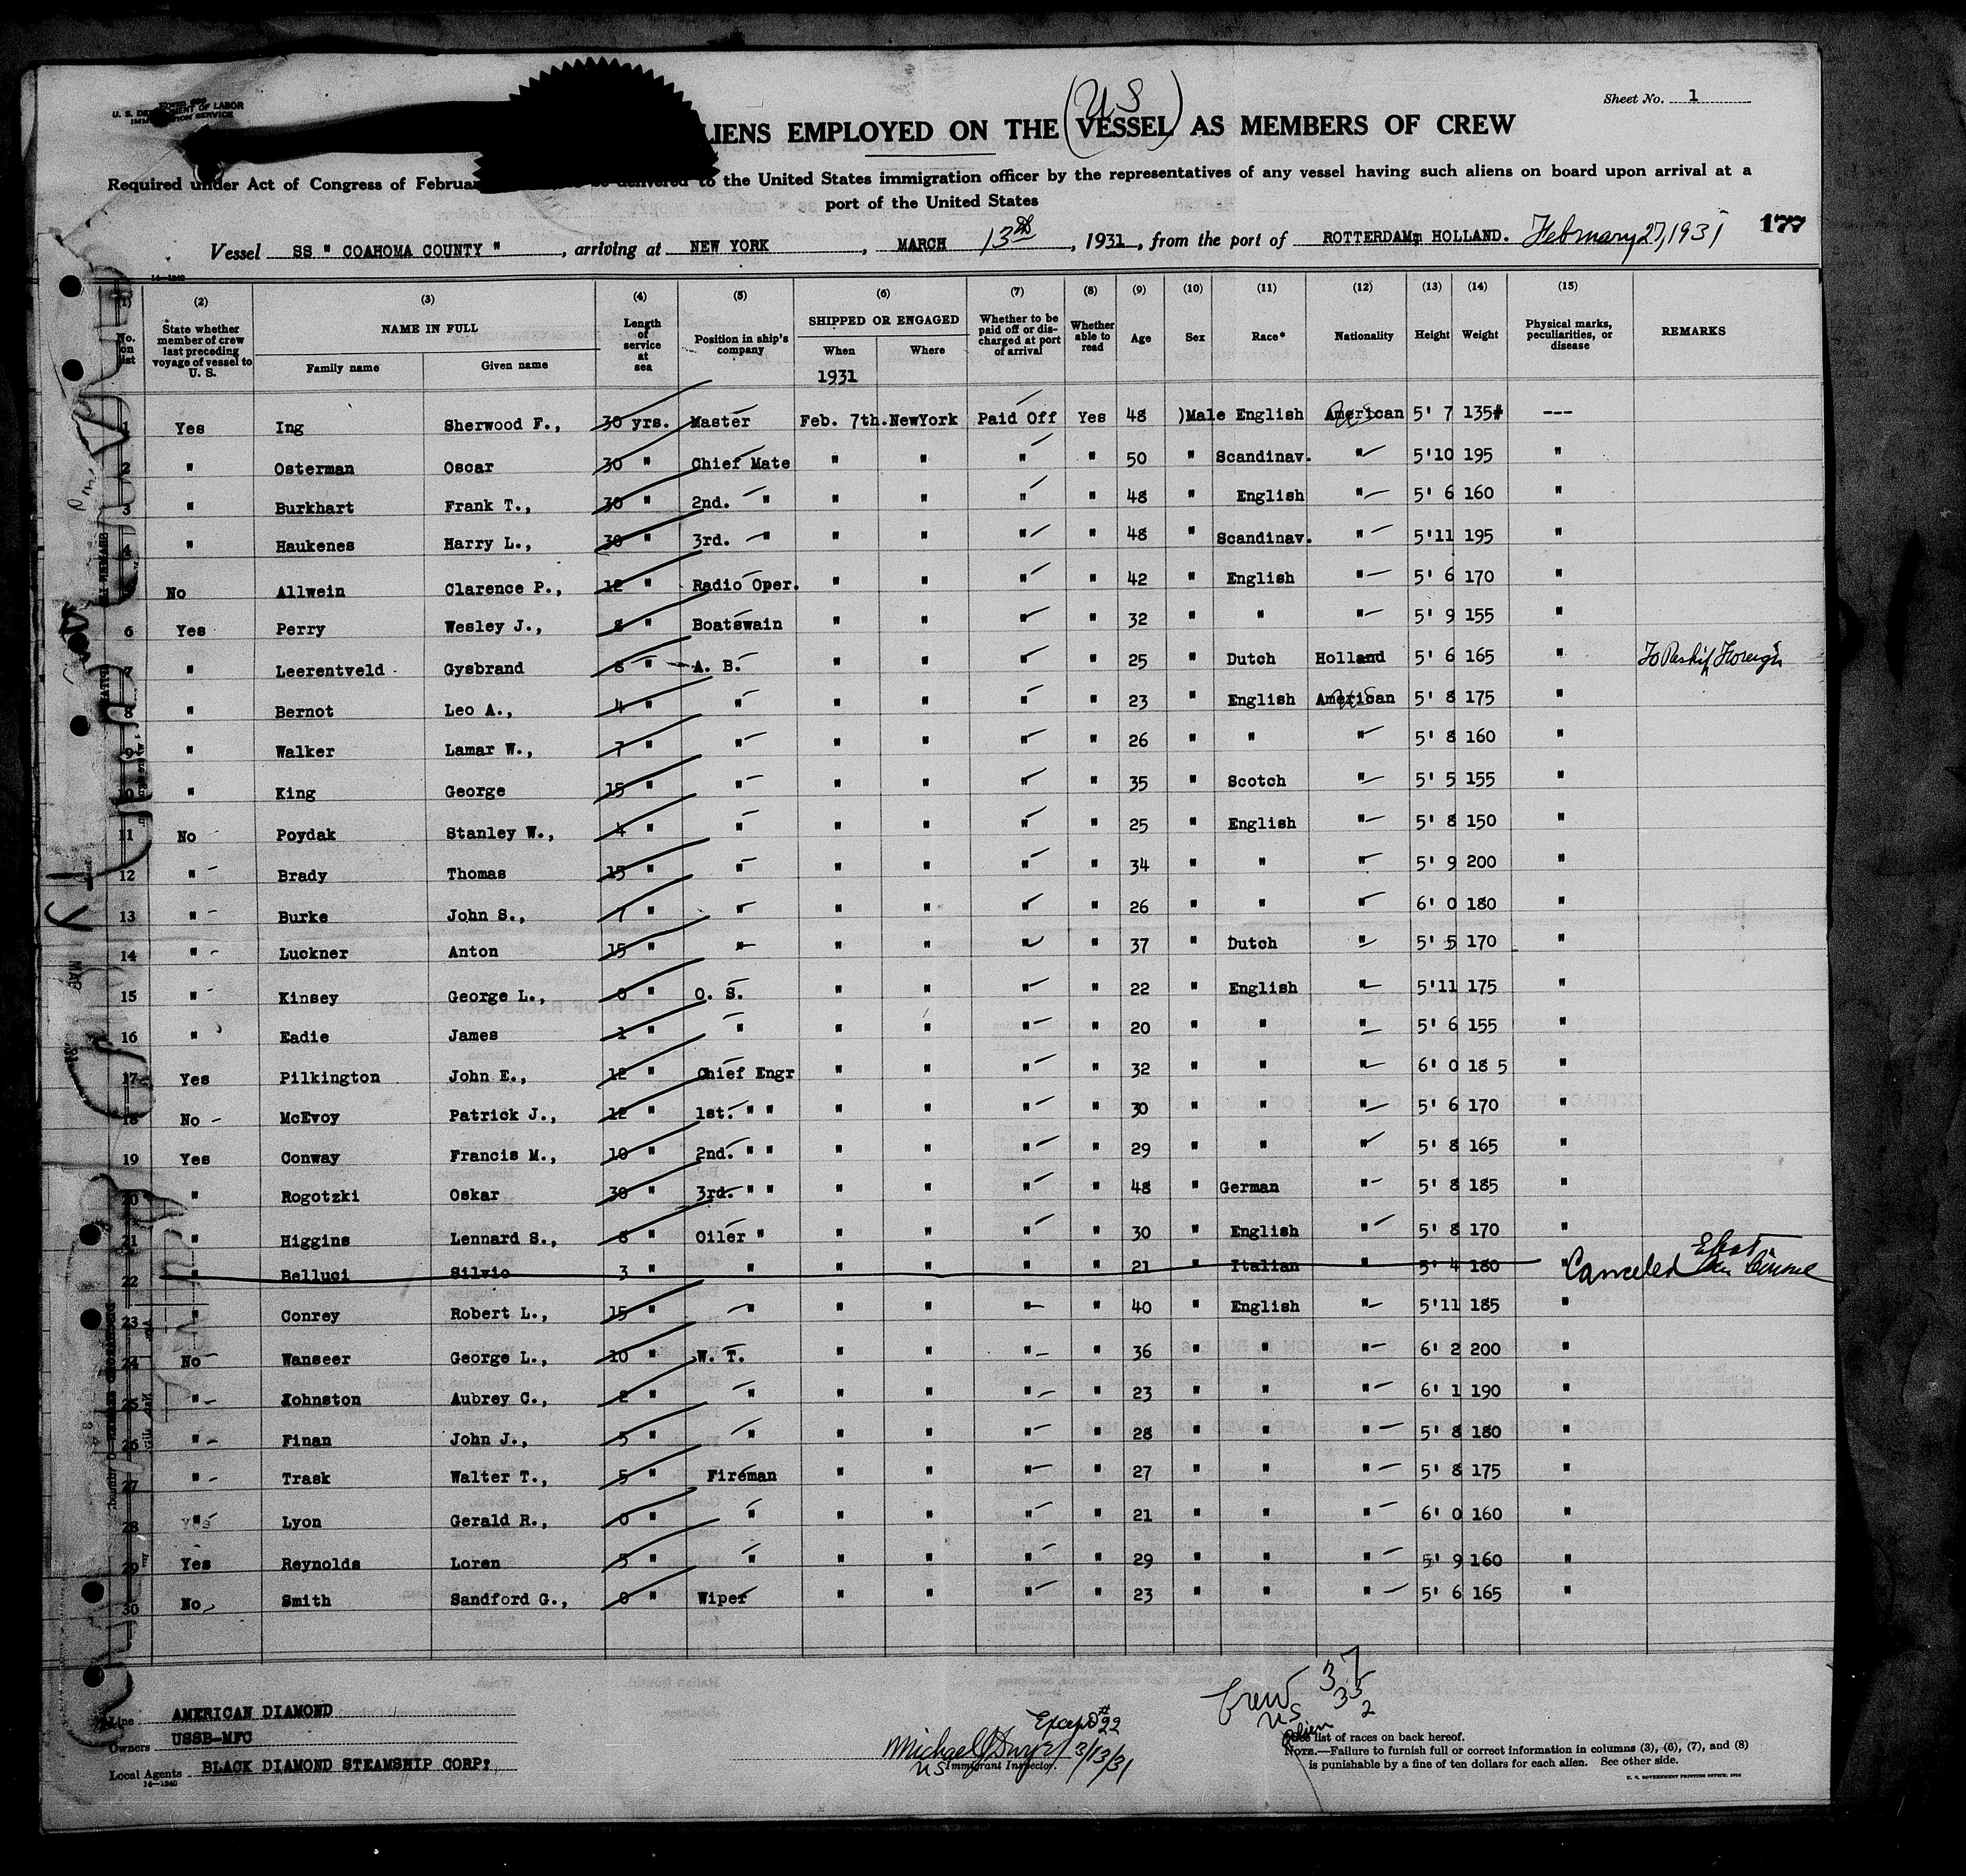 Sheet No. 1
U. S. DEPARTMENT OF LABOR
IMMIGRATION SERVICE
(US)
LIENS EMPLOYED ON THE VESSEL AS MEMBERS OF CREW
Required under Act of Congress of Februar be delivered to the United States immigration officer by the representatives of any vessel having such aliens on board upon arrival at a
port of the United States
177
Vessel SS " COAHOMA COUNTY ", arriving at NEW YORK, MARCH 13th, 1931, from the port of ROTTERDAM, HOLLAND. February 27, 1931
14-1240
(1) (2) (3) (4) (5) (6) (7) (8) (9) (10) (11) (12) (13) (14) (15)
No. on list State whether member of crew last preceding voyage of vessel to U. S. NAME IN FULL Family name Given name Length of service at sea Position in ship's company SHIPPED OR ENGAGED When Where Whether to be paid off or discharged at port of arrival Whether able to read Age Sex Race* Nationality Height Weight Physical marks, peculiarities, or disease REMARKS
1931
1 Yes Ing Sherwood F., 30 yrs. Master Feb. 7th. NewYork Paid Off Yes 48 )Male English American 5' 7 135# ---
2 " Osterman Oscar 30 " Chief Mate " " " " 50 " Scandinav. " 5'10 195 "
3 " Burkhart Frank T., 30 " 2nd. " " " " " 48 " English " 5' 6 160 "
4 " Haukenes Harry L., 30 " 3rd. " " " " " 48 " Scandinav. " 5'11 195 "
5 No Allwein Clarence P., 12 " Radio Oper. " " " " 42 " English " 5' 6 170 "
6 Yes Perry Wesley J., 8 " Boatswain " " " " 32 " " " 5' 9 155 "
7 " Leerentveld Gysbrand 8 " A. B. " " " " 25 " Dutch Holland 5' 6 165 " To Reship Foreign
8 " Bernot Leo A., 4 " " " " " " 23 " English American 5' 8 175 "
9 " Walker Lamar W., 7 " " " " " " 26 " " " 5' 8 160 "
10 " King George 15 " " " " " " 35 " Scotch " 5' 5 155 "
11 No Poydak Stanley W., 4 " " " " " " 25 " English " 5' 8 150 "
12 " Brady Thomas 15 " " " " " " 34 " " " 5' 9 200 "
13 " Burke John S., 7 " " " " " " 26 " " " 6' 0 180 "
14 " Luckner Anton 15 " " " " " " 37 " Dutch " 5' 5 170 "
15 " Kinsey George L., 0 " O. S. " " " " 22 " English " 5'11 175 "
16 " Eadie James 1 " " " " " " 20 " " " 5' 6 155 "
17 Yes Pilkington John E., 12 " Chief Engr " " " " 32 " " " 6' 0 18 5 "
18 No McEvoy Patrick J., 12 " 1st. " " " " " " 30 " " " 5' 6 170 "
19 Yes Conway Francis M., 10 " 2nd. " " " " " " 29 " " " 5' 8 165 "
20 " Rogotzki Oskar 30 " 3rd. " " " " " " 48 " German " 5' 8 185 "
21 " Higgins Lennard S., 8 " Oiler " " " " " 30 " English " 5' 8 170 "
22 " Belluci Silvio 3 " " " " " " 21 " Italian " 5' 4 180 " Canceled
23 " Conrey Robert L., 15 " " " " " " 40 " English " 5'11 185 "
24 No Wanseer George L., 10 " W. T. " " " " 36 " " " 6' 2 200 "
25 " Johnston Aubrey C., 2 " " " " " " 23 " " " 6' 1 190 "
26 " Finan John J., 5 " " " " " " 28 " " " 5' 8 180 "
27 " Trask Walter T., 5 " Fireman " " " " 27 " " " 5' 8 175 "
28 " Lyon Gerald R., 0 " " " " " " 21 " " " 6' 0 160 "
29 Yes Reynolds Loren 5 " " " " " " 29 " " " 5' 9 160 "
30 No Smith Sandford G., 0 " Wiper " " " " 23 " " " 5' 6 165 "
Crew 37
US 35
Alien 2
Line AMERICAN DIAMOND
Owners USSB-MFC
Local Agents BLACK DIAMOND STEAMSHIP CORP.
14-1240
Except #22
Michael J Dwyer 3/13/31
US Immigrant Inspector.
See list of races on back hereof.
NOTE.—Failure to furnish full or correct information in columns (3), (6), (7), and (8)
is punishable by a fine of ten dollars for each alien. See other side.